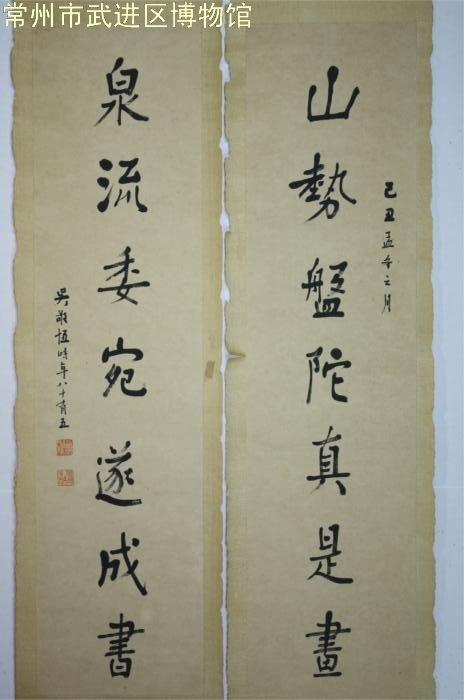 常州市武进区博物馆
山勢盤陀真是畫
己丑孟冬之月
泉流委宛遂成書
吳敬恆時年八十有五